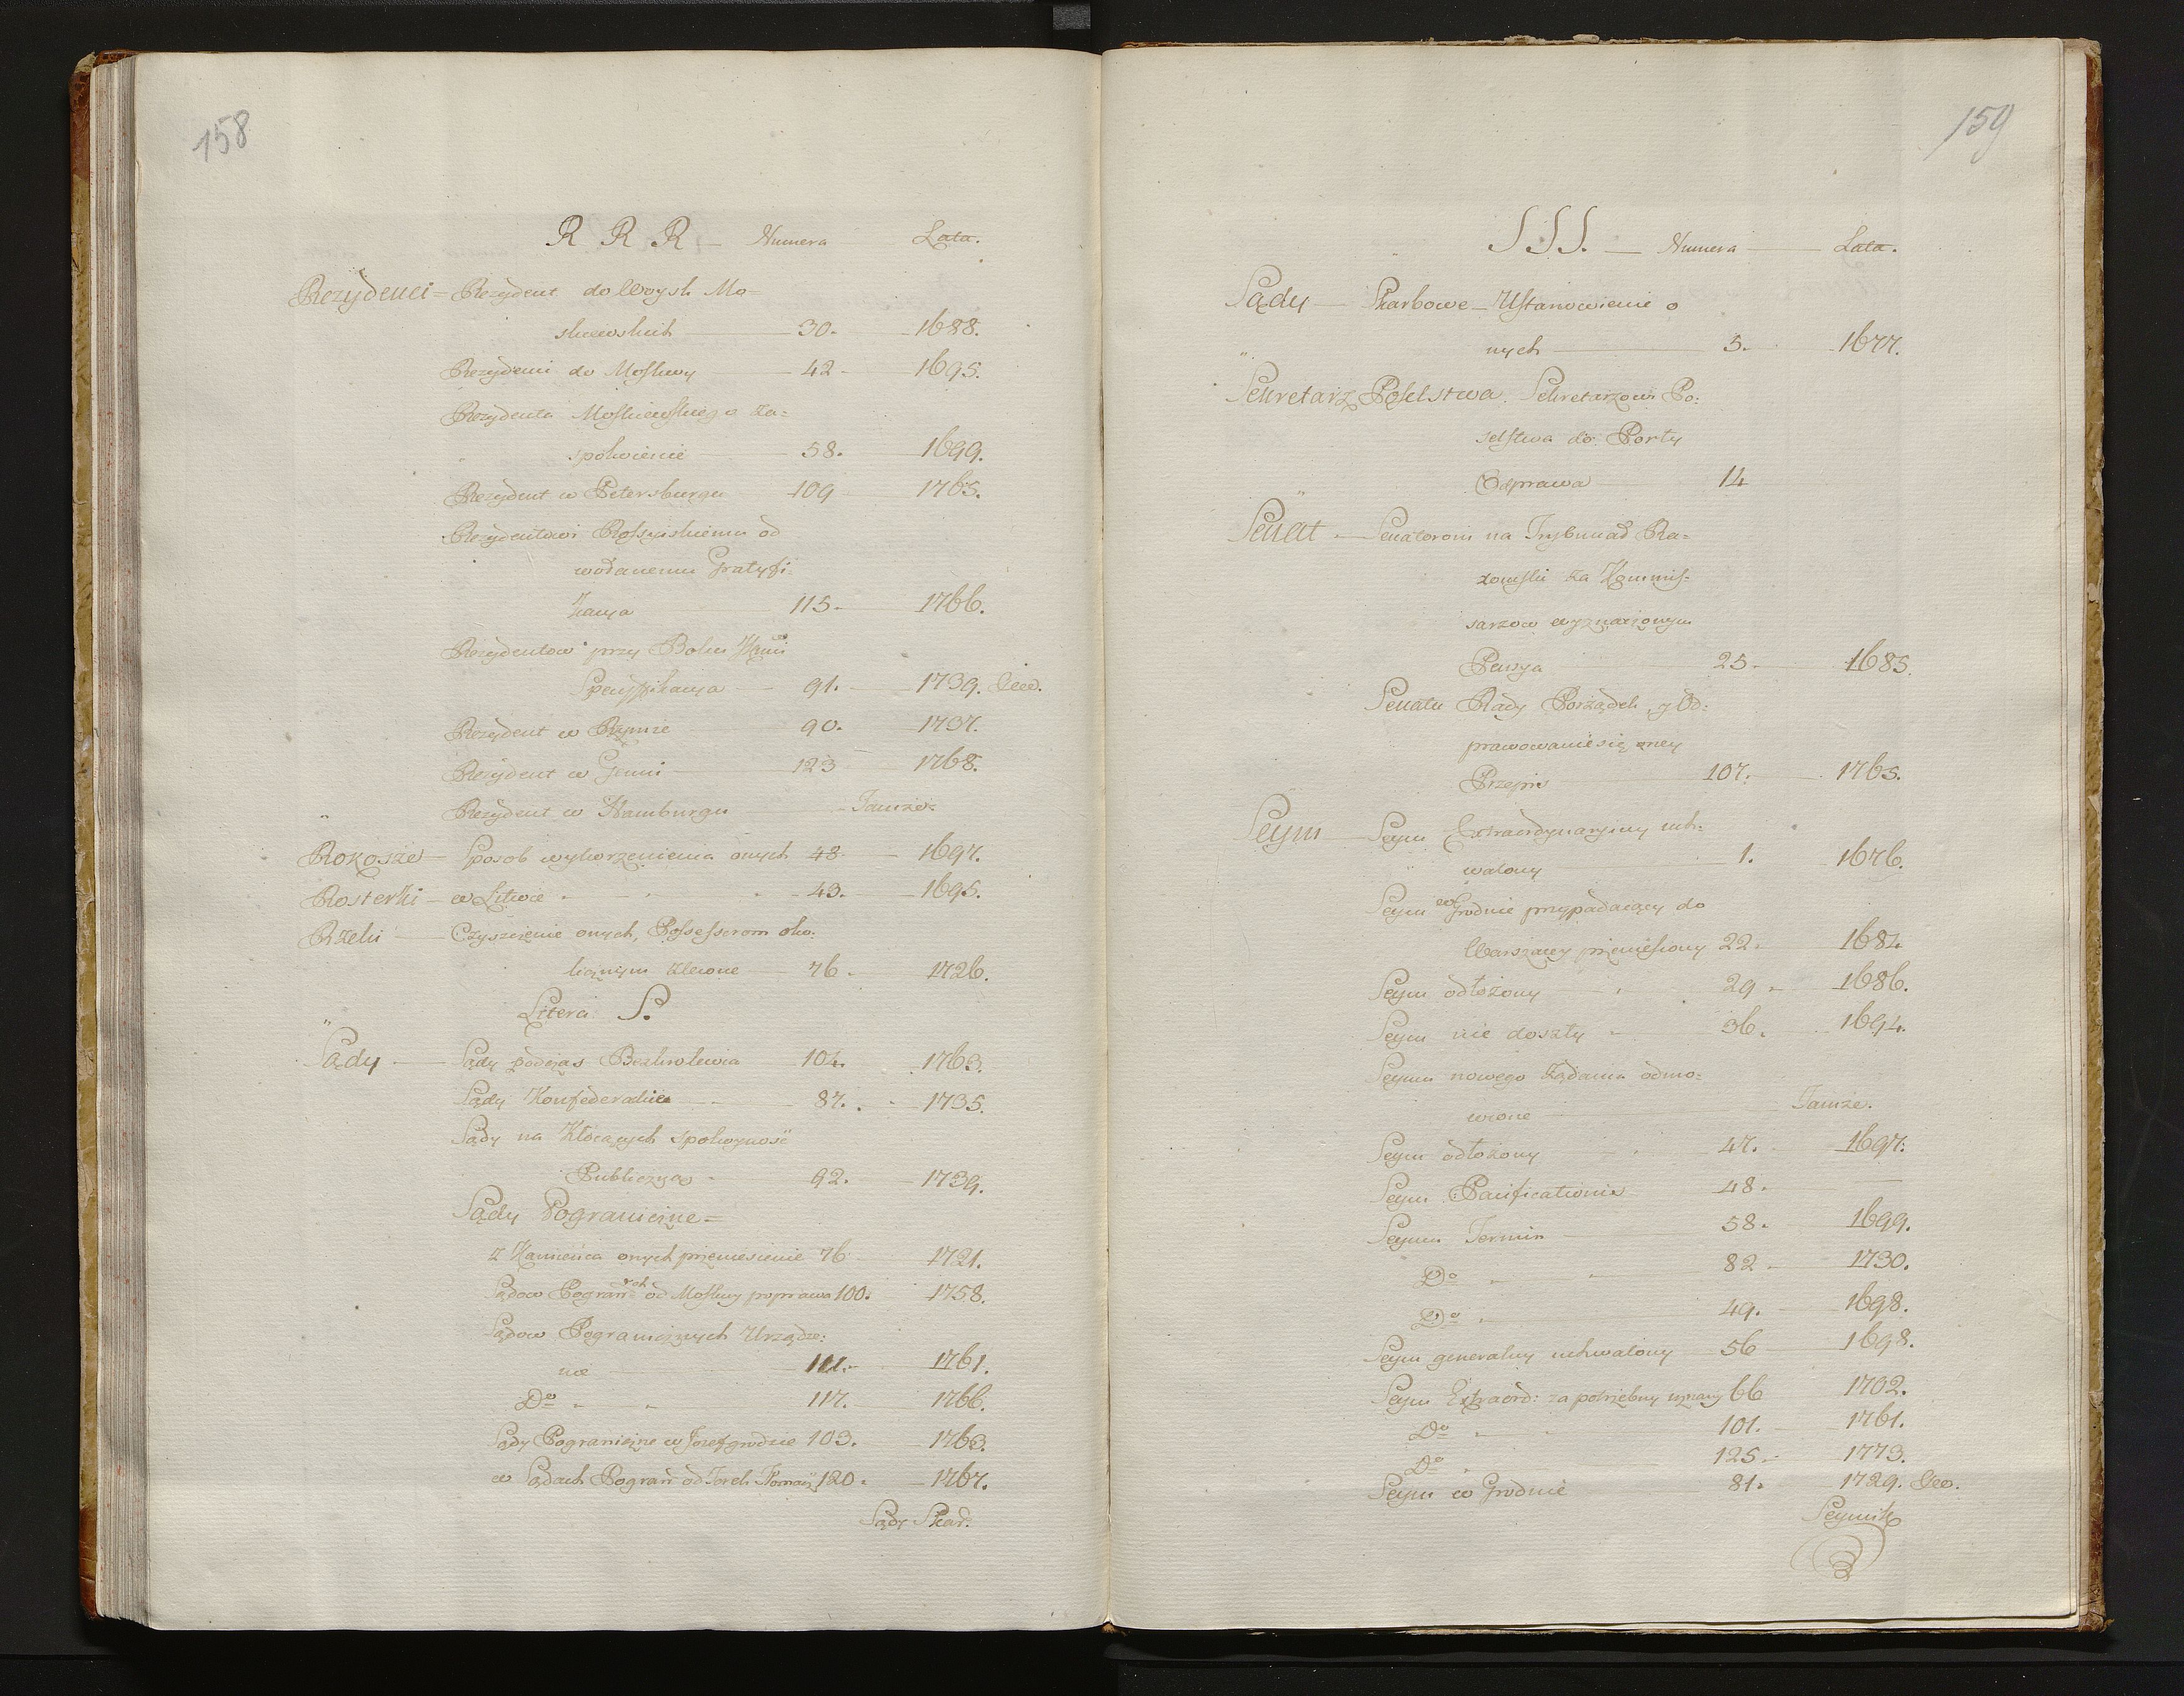 158
R R R — Numera Lata.
Rezydenci = Rezydent do Woysk Mo=
skiewskich — 30. — 1688.
Rezydenci do Moskwy — 42 — 1695.
Rezydenta Moskiewskiego za=
spokoienie — 58. — 1699.
Rezydent w Petersburgu 109 — 1765.
Rezydentowi Rossyiskiemu od
wołanemu Gratyfi-
kacya — 115 — 1766.
Rezydentow przy Boku
Specyfikacya — 91. — 1739.
Rezydent w Rzymie — 90. — 1737.
Rezydent w — 123 — 1768.
Rezydent w Hamburgu — Tamże.
Rokosze — Sposob wykorzenienia onych 48 — 1697.
Rosterki — w Litwie — 43. — 1695.
Rzeki — Czyszczenie onych, Possessorom oko:
licznym zlecone — 76. — 1726.
Litera S.
Sądy — Sądy podczas Bezkrolewia 104. 1763.
Sądy Konfederackie — 87. — 1735.
Sądy na Kłocących spokoyność
Publiczną — 92. — 1739.
Sądy Pograniczne =
z Kamieńca onych przeniesienie 76 — 1721.
Sądow Pogranych od Moskwy poprawa 100. 1758.
Sądow Pogranicznych Urządze:
nie — 101. — 1761.
Do — 117. — 1766.
Sądy Pograniczne w Jozefgrodzie 103. — 1763.
w Sądach Pogran od 120. — 1767.
Sądy Skar.
159
S S S. — Numera — Lata.
Sądy — Skarbowe — Ustanowienie o
nych — 5. — 1677.
Sekretarz Poselstwa. Sekretarzowi Po:
selstwa do Porty
Odprawa — 14
Senat — Senatorom na Trybunał Ra=
domski za Kommis-
sarzow wyznaczonym
Pensya — 25 — 1685.
Senatu Rady Porządek, y Od:
prawowanie się oney
Przepis — 107. — 1765.
Seym — Seym Extraordynaryiny uch:
walony — 1. — 1676.
Seym w Grodnie przypadaiący do
Warszawy przeniesiony 22. — 1684
Seym odłożony — 29 — 1686.
Seym nie doszły — 36. — 1694.
Seymu nowego żądania odmo:
wione — Tamże.
Seym odłożony — 47. — 1697.
Seym Pacificationis — 48. —
Seymu Termin — 58. — 1699.
Do — 82 — 1730.
Do — 49. — 1698.
Seym generalny uchwalony — 56 — 1698.
Seym Extraord: za potrzebny uznany 66 1702.
Do — 101. — 1761.
Do — 125 — 1773.
Seym w Grodnie — 81. — 1729.
Seymik